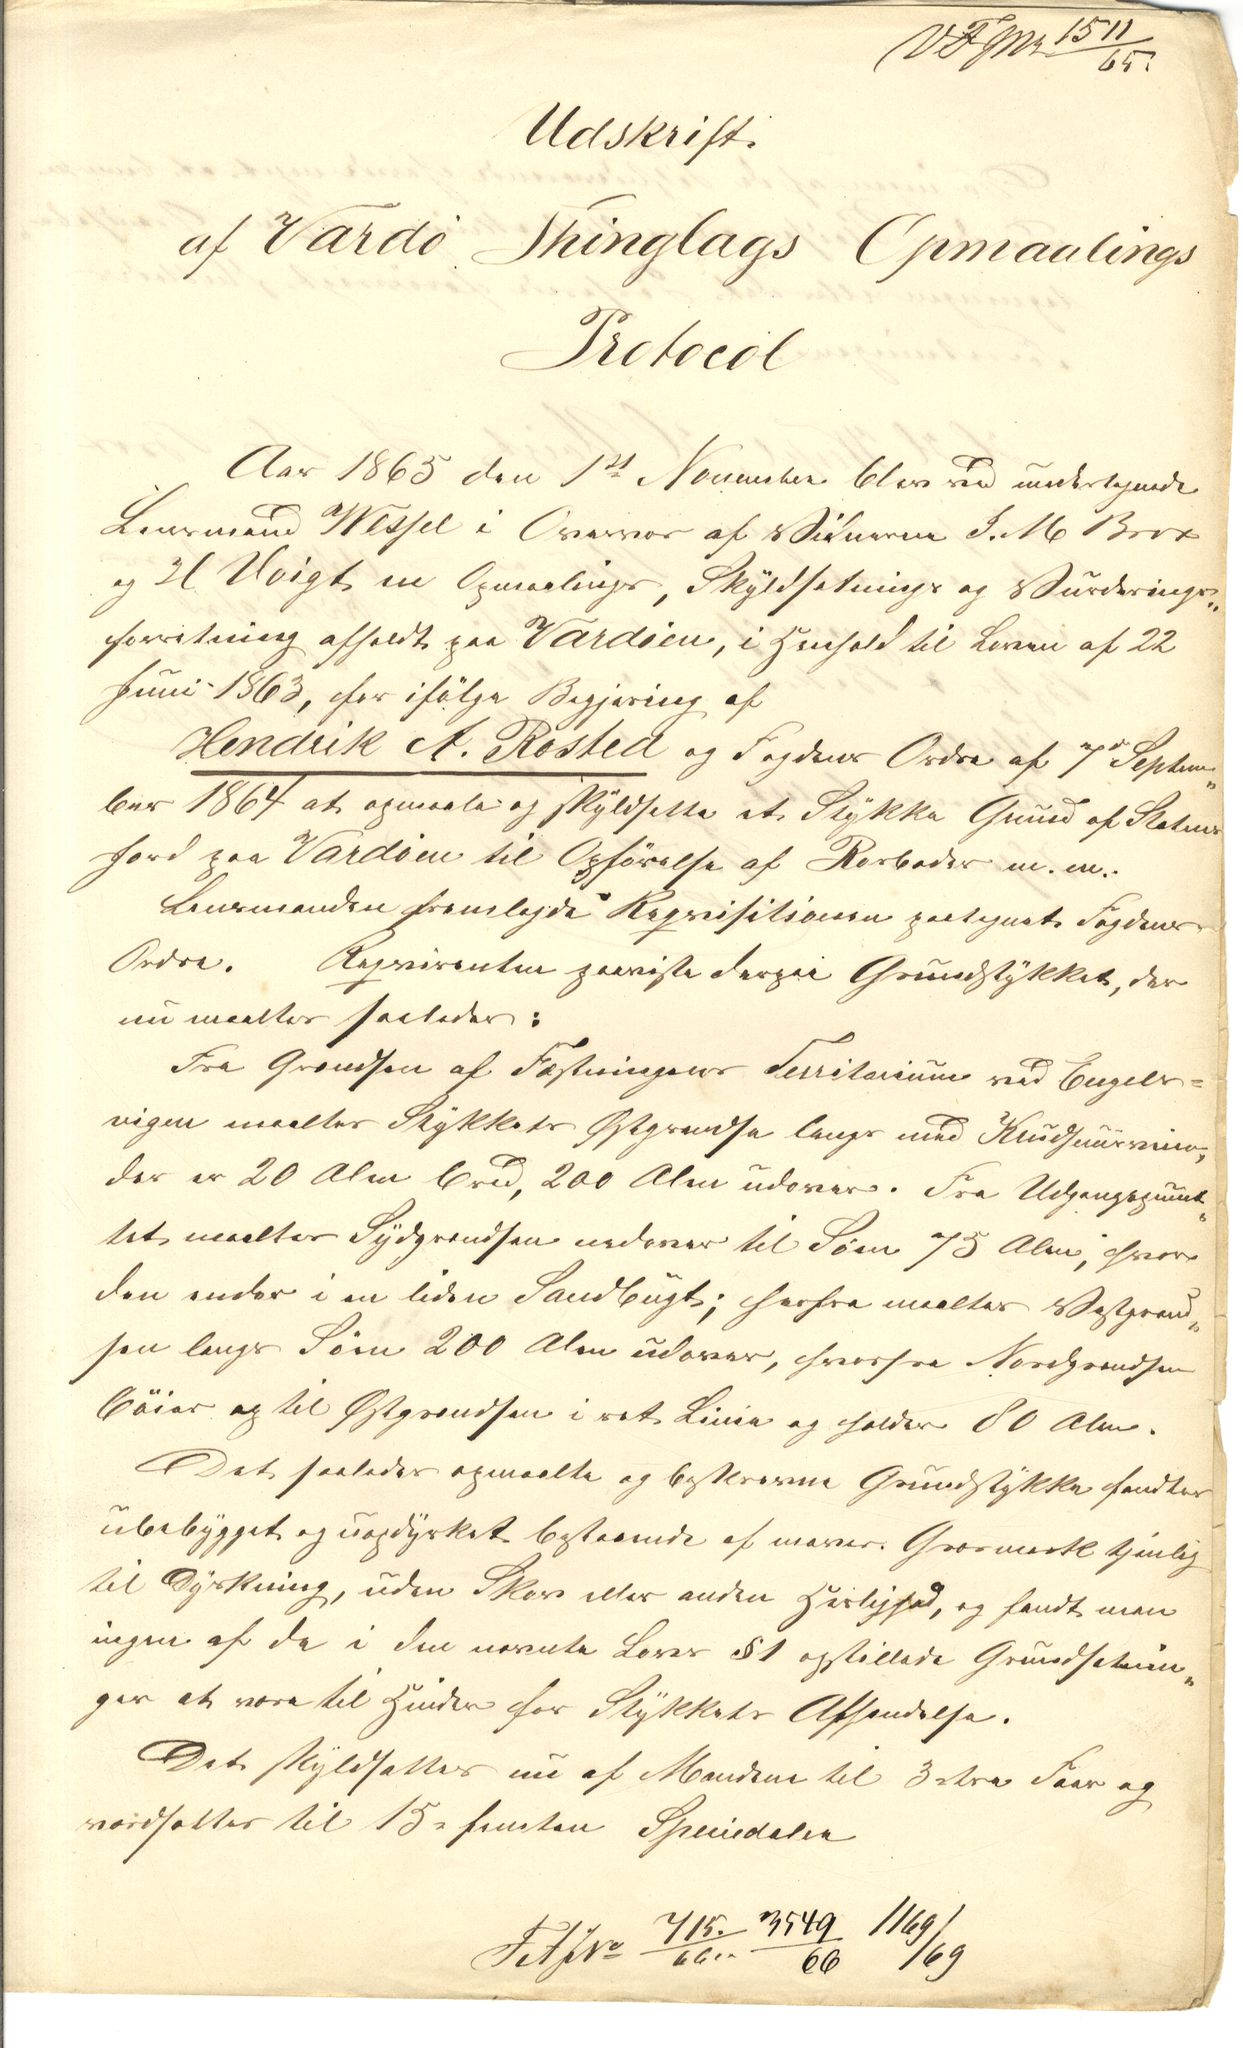 VF JNr 1511/65.
Udskrift.
af Vardö Thinglags Opmaalings
Protocol
Aar 1865 den 1st November blev ved undertegnede
Lensmand Wessel i Overvær af Vidnerne J. M Brox
og H Voigt en Opmaalings, Skyldsætnings og Vurderings„
forretning afholdt paa Vardöen, i Henhold til Loven af 22
Juni 1863, for ifölge Begjæring af
Hendrik A. Rosted og Fogdens Ordre af 7d Septem„
ber 1864 at opmaale og skyldsætte et Stykke Grund af Statens
Jord paa Vardöen til Opförelse af Rorboder m. m.
Lensmanden fremlagde Reqvisitionen paategnet Fogdens
Ordre. Reqvirenten paaviste derpaa Grundstykket, der
nu maaltes saaledes:
Fra Grændsen af Fæstningens Territorium ved Engels-
vigen maaltes Stykkets Östgrændse langs med
der er 20 Alen bred, 200 Alen udover. Fra Udgangspunk„
tet maaltes Sydgrændsen nedover til Söen 75 Alen, hvor
den ender i en liden Sandbugt; herfra maaltes Vestgrænd„
sen langs Söen 200 Alen udover, hvorfra Nordgrændsen
böier op til Östgrændsen i ret Linie og holder 80 Alen.
Det saaledes opmaalte og beskrevne Grundstykke fandtes
ubebygget og uopdyrket bestaaende af mager Græsmark tjenlig
til Dyrkning, uden Skov eller anden Herlighed, og fandt man
ingen af de i den nævnte Lovs §1 opstillede Grundsætnin„
ger at være til Hinder for Stykkets Afhændelse.
Det skyldsattes nu af Mændene til 3 tre Skill og
værdsattes til 15 femten Speciedaler
715./66 3549/66 1169/69